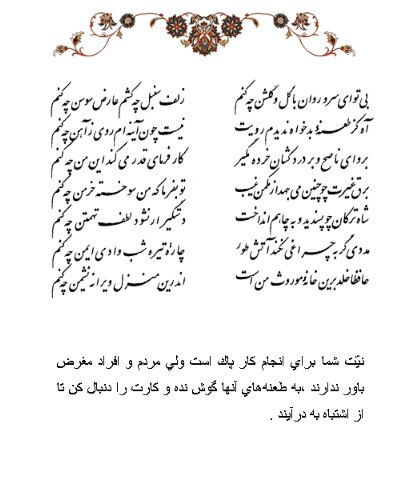 بی توای سرو روان با گل و گلشن چه کنم
زلف سنبل چه کشم عارض سوسن چه کنم
آه کز طعنهٔ بدخواه ندیدم رویت
نیست چون آینه ام روی ز آهن چه کنم
بروای ناصح و بر دردکشان خرده مگیر
کارفرمای قدر می کند این من چه کنم
برق غیرت چو چنین می جهد از مکمن غیب
تو بفرما که من سوخته خرمن چه کنم
شاه ترکان چو پسندید و به چاهم انداخت
دستگیر ار نشود لطف تهمتن چه کنم
مددی گر به چراغی نکند آتش طور
چارهٔ تیره شب وادی ایمن چه کنم
حافظا خلد برین خانهٔ موروث من است
اندرین منزل ویرانه نشیمن چه کنم
نيّت شما براي انجام كار پاك است ولي مردم و افراد مغرض
باور ندارند ،به طعنه‌هاي آنها گوش نده و كارت را دنبال كن تا
از اشتباه به درآيند .